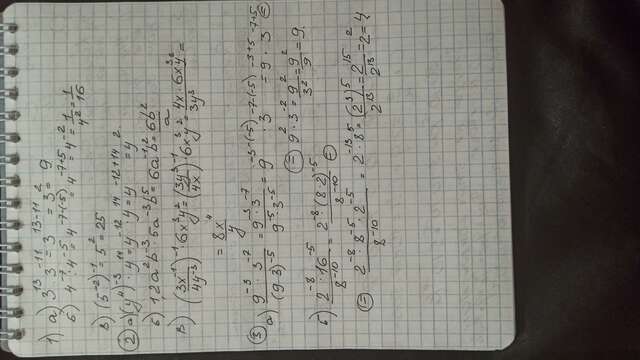 1) а) 3¹³ · 3⁻¹¹ = 3¹³⁻¹¹ = 3² = 9
б) 4⁻⁷ : 4⁻⁵ = 4⁻⁷⁻⁽⁻⁵⁾ = 4⁻⁷⁺⁵ = 4⁻² = 1/4² = 1/16
в) (5⁻²)⁻¹ = 5² = 25
② а) (y⁴)⁻³ · y¹⁴ = y⁻¹² · y¹⁴ = y⁻¹²⁺¹⁴ = y²
б) 1,2a²b⁻³ · 5a⁻³b⁵ = 6a⁻¹b² = 6b²/a
в) (3x⁻¹/4y⁻³)⁻¹ · 6xy² = (3y³/4x)⁻¹ · 6xy² = 4x · 6xy²/3y³ =
= 8x/y
③ а) 9⁻³ · 3⁻⁷/(9·3)⁻⁵ = 9⁻³ · 3⁻⁷/9⁻⁵ · 3⁻⁵ = 9⁻³⁻⁽⁻⁵⁾ · 3⁻⁷⁻⁽⁻⁵⁾ = 9⁻³⁺⁵ · 3⁻⁷⁺⁵ =
= 9² · 3⁻² = 9²/3² = 9²/9 = 9
б) 2⁻⁸ · 16⁻⁵/8⁻¹⁰ = 2⁻⁸ · (8·2)⁻⁵/8⁻¹⁰ =
= 2⁻⁸ · 8⁻⁵ · 2⁻⁵/8⁻¹⁰ = 2⁻¹³ · 8⁵ = (2³)⁵/2¹³ = 2¹⁵/2¹³ = 2² = 4